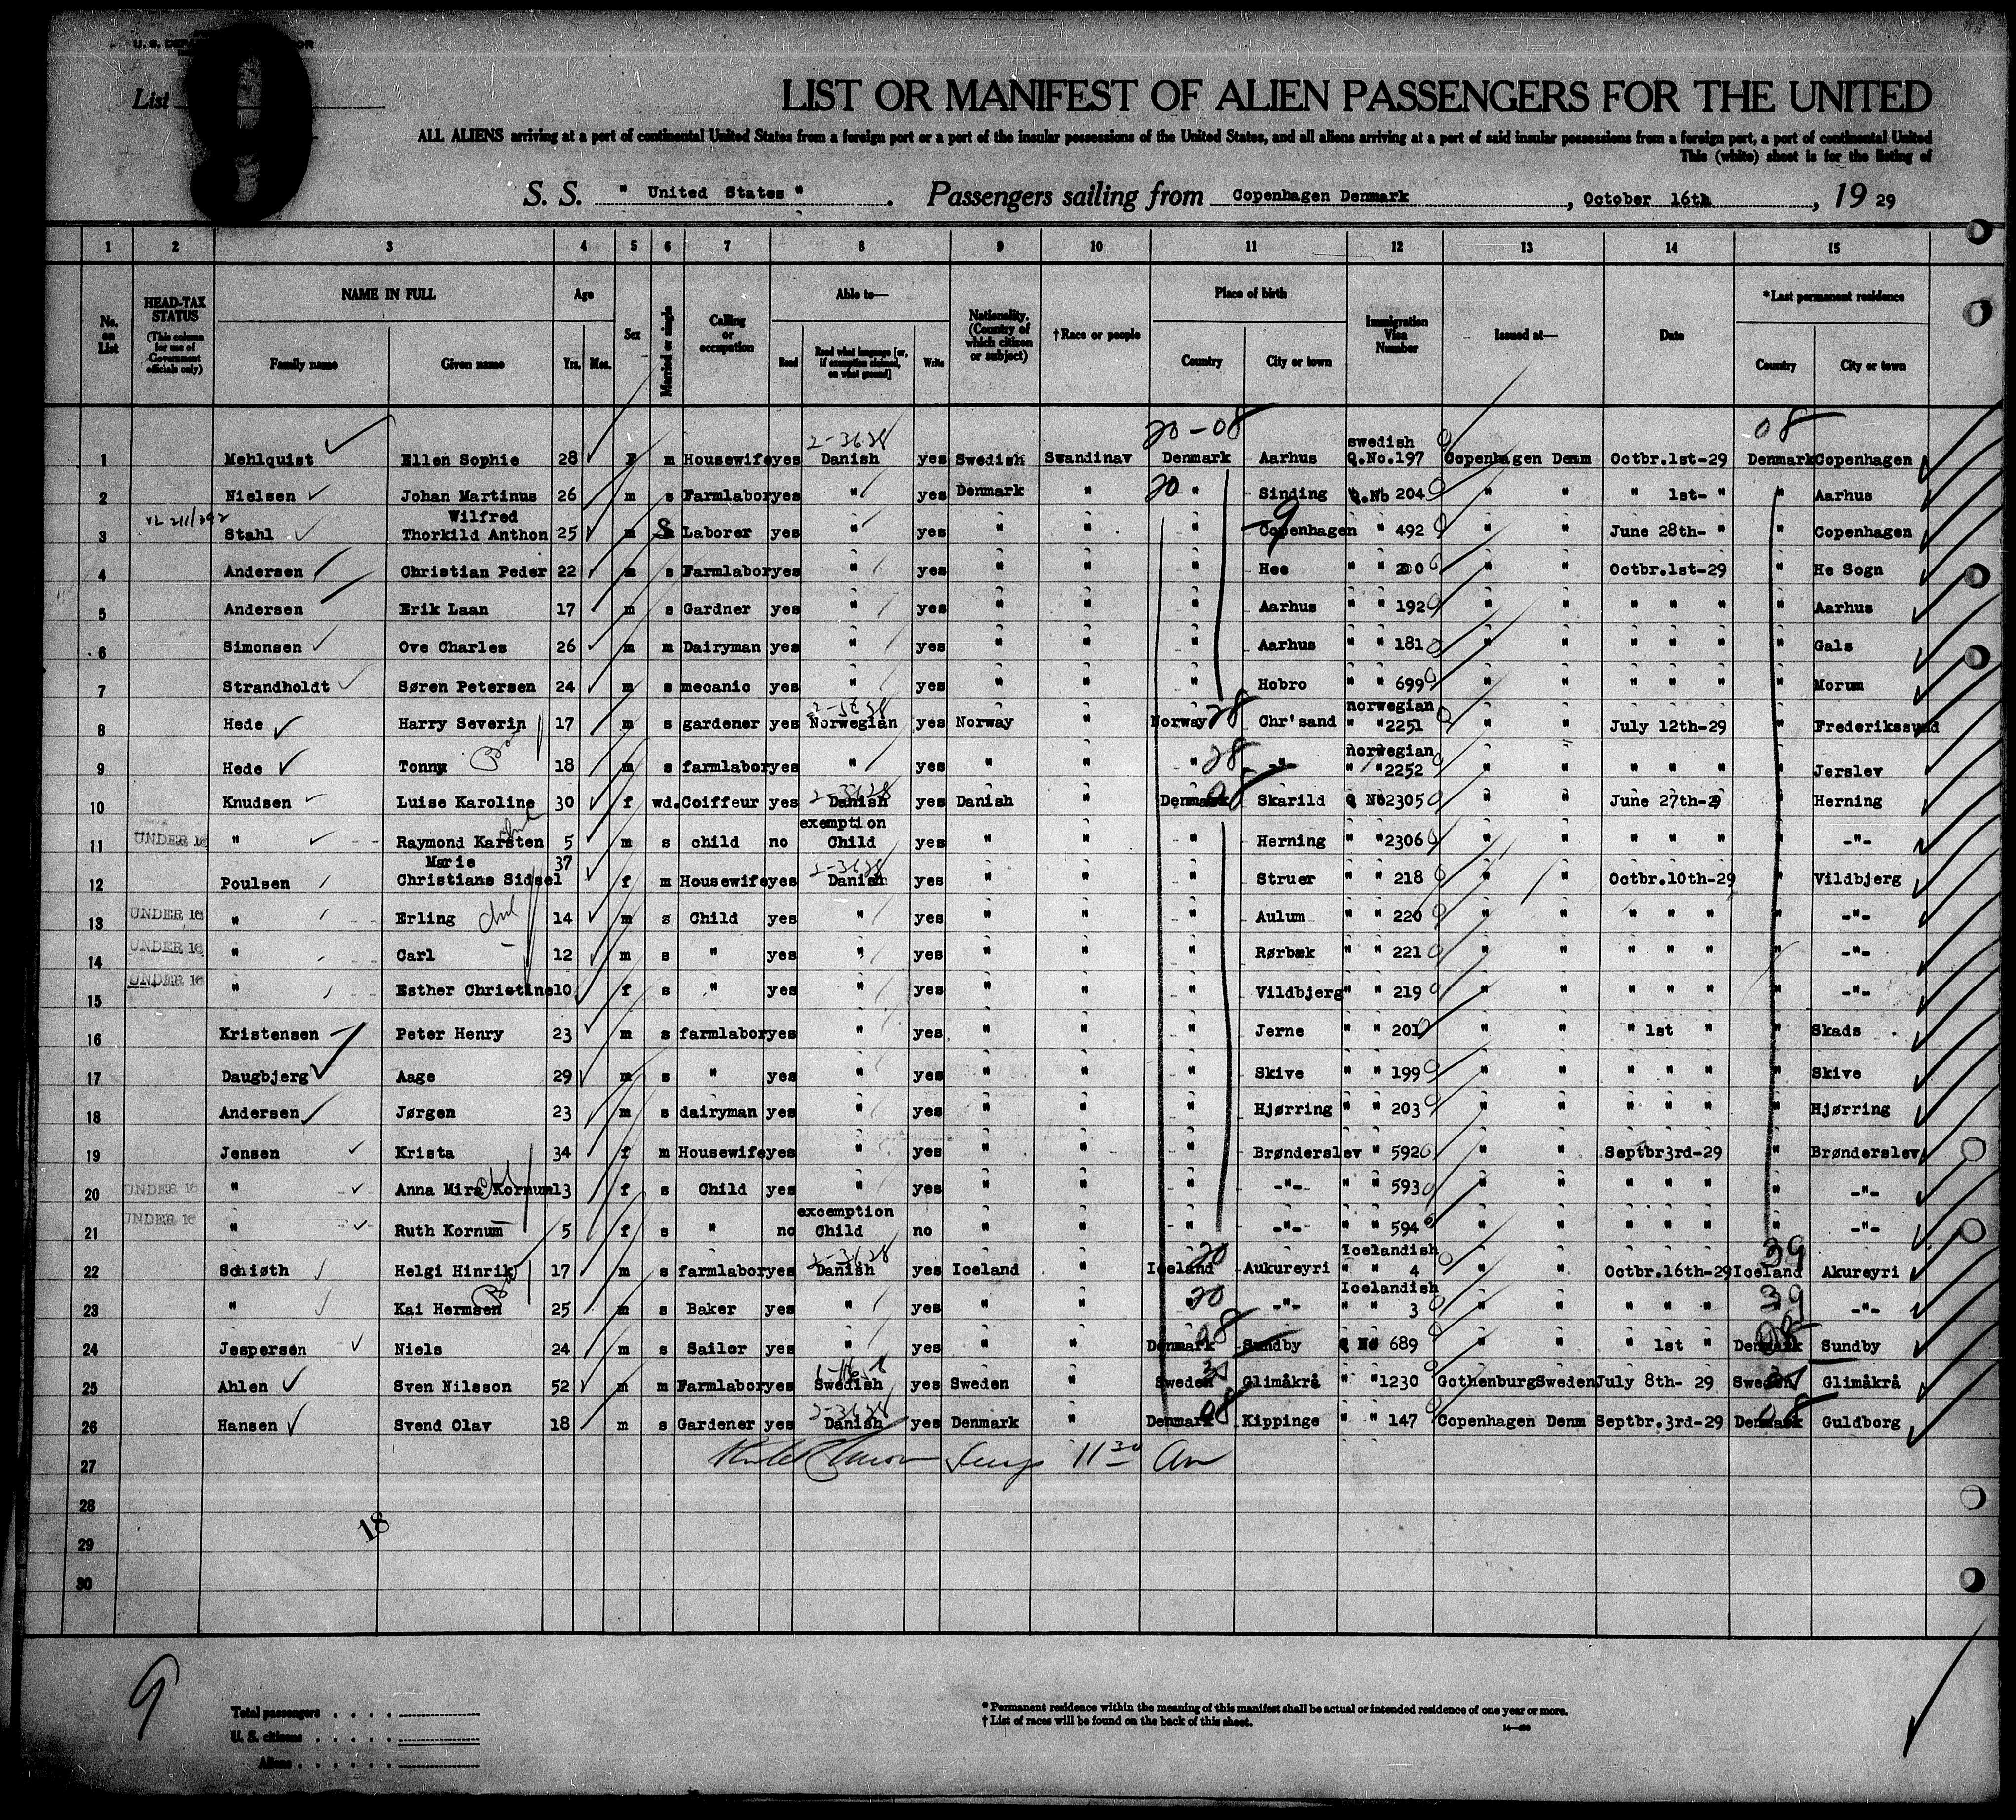 U. S. DEPARTMENT OF LABOR
List 9
LIST OR MANIFEST OF ALIEN PASSENGERS FOR THE UNITED
ALL ALIENS arriving at a port of continental United States from a foreign port or a port of the insular possessions of the United States, and all aliens arriving at a port of said insular possessions from a foreign port, a port of continental United
This (white) sheet is for the listing of
S. S. " United States " . Passengers sailing from Copenhagen Denmark , October 16th , 19 29
1 2 3 4 5 6 7 8 9 10 11 12 13 14 15
No. on List
HEAD-TAX STATUS (This column for use of Government officials only)
NAME IN FULL Family name Given name
Age Yrs. Mos.
Sex
Married or single
Calling or occupation
Able to— Read Read what language [or, if exemption claimed, on what ground] Write
Nationality. (Country of which citizen or subject)
†Race or people
Place of birth Country City or town
Immigration Visa Number
Issued at—
Date
*Last permanent residence Country City or town
20-08 08
2-3628 swedish
1 Mehlquist Ellen Sophie 28 F m Housewife yes Danish yes Swedish Swandinav Denmark Aarhus Q.No.197 Copenhagen Denm Octbr.1st-29 Denmark Copenhagen
2 Nielsen Johan Martinus 26 m s Farmlabor yes " yes Denmark " 20 " Sinding Q.No 204 " " " 1st- " " Aarhus
Wilfred
3 Stahl Thorkild Anthon 25 m S Laborer yes " yes " " " Copenhagen " 492 " " June 28th- " " Copenhagen
4 Andersen Christian Peder 22 m s Farmlabor yes " yes " " " Hee " " 200 " " Octbr.1st-29 " He Sogn
5 Andersen Erik Laan 17 m s Gardner yes " yes " " " Aarhus " " 192 " " " " " " Aarhus
6 Simonsen Ove Charles 26 m m Dairyman yes " yes " " " Aarhus " " 181 " " " " " " Gals
7 Strandholdt Søren Petersen 24 m s mecanic yes " yes " " " Hobro " " 699 " " " " " " Morum
norwegian
8 Hede Harry Severin 17 m s gardener yes Norwegian yes Norway " Norway 28 Chr'sand " "2251 " " July 12th-29 " Frederikssund
norwegian
9 Hede Tonny 18 m s farmlabor yes " yes " " " 28 -"- " "2252 " " " " " " Jerslev
2-3628
10 Knudsen Luise Karoline 30 f wd. Coiffeur yes Danish yes Danish " Denmark 08 Skarild Q No2305 " " June 27th-29 " Herning
exemption
11 UNDER 16 " Raymond Karsten 5 m s child no Child yes " " " Herning " "2306 " " " " " " -"-
Marie 37 2-3628
12 Poulsen Christiane Sidsel f m Housewife yes Danish yes " " " Struer " " 218 " " Octbr.10th-29 " Vildbjerg
13 UNDER 16 " Erling 14 m s Child yes " yes " " " Aulum " " 220 " " " " " " -"-
14 UNDER 16 " Carl 12 m s " yes " yes " " " Rørbæk " " 221 " " " " " " -"-
15 UNDER 16 " Esther Christine 10 f s " yes " yes " " " Vildbjerg " " 219 " " " " " " -"-
16 Kristensen Peter Henry 23 m s farmlabor yes " yes " " " Jerne " " 201 " " " 1st " " Skads
17 Daugbjerg Aage 29 m s " yes " yes " " " Skive " " 199 " " " " " " Skive
18 Andersen Jørgen 23 m s dairyman yes " yes " " " Hjørring " " 203 " " " " " " Hjørring
19 Jensen Krista 34 f m Housewife yes " yes " " " Brønderslev " 592 " " Septbr3rd-29 " Brønderslev
20 UNDER 16 " Anna Mira Kornum 13 f s Child yes " yes " " " -"- " " 593 " " " " " " -"-
excemption
21 UNDER 16 " Ruth Kornum 5 f s " no Child no " " " -"- " " 594 " " " " " " -"-
2-3628 20 Icelandish 39
22 Schiøth Helgi Hinrik 17 m s farmlabor yes Danish yes Iceland " Iceland Aukureyri " " 4 " " Octbr.16th-29 Iceland Akureyri
Icelandish
23 " Kai Hermsen 25 m s Baker yes " yes " " 20 -"- " " 3 " " " " " 39 -"-
24 Jespersen Niels 24 m s Sailor yes " yes " " Denmark 08 Sundby Q No 689 " " " 1st " Denmark Sundby
25 Ahlen Sven Nilsson 52 m m Farmlabor yes Swedish yes Sweden " Sweden Glimåkrå " "1230 Gothenburg Sweden July 8th- 29 Sweden Glimåkrå
2-3628
26 Hansen Svend Olav 18 m s Gardener yes Danish yes Denmark " Denmark 08 Kippinge " " 147 Copenhagen Denm Septbr.3rd-29 Denmark 08 Guldborg
27 11 30 Am
28
18
29
30
9
Total passengers . . . .
U. S. citizens . . . . .
Aliens . . . . . .
* Permanent residence within the meaning of this manifest shall be actual or intended residence of one year or more.
† List of races will be found on the back of this sheet.